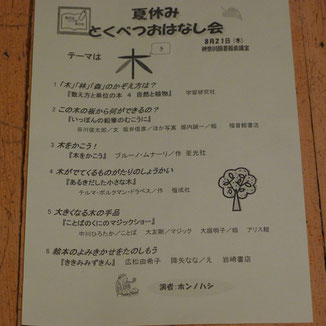 夏休み
とくべつおはなし会
8月21日(木)
神奈川図書館会議室
テーマは 木
き
1 「木」「林」「森」のかぞえ方は?
『数え方と単位の本 4 自然と植物』 学習研究社
2 この木の板から何ができるの?
『いっぽんの鉛筆のむこうに』
谷川俊太郎/文 坂井信彦/ほか写真 堀内誠一/絵 福音館書店
3 木をかこう!
『木をかこう』 ブルーノ・ムナーリ/作 至光社
4 木がでてくるものがたりのしょうかい
『あるきだした小さな木』
テルマ・ボルクマン・ドラベス/作 偕成社
5 大きくなる木の手品
『ことばのくにのマジックショー』
中川ひろたか/ことば 大友剛/マジック 大庭明子/絵 アリス館
6 絵本のよみきかせをたのしもう
『ききみみずきん』 広松由希子 降矢なな/え 岩崎書店
演者:ホンノハシ